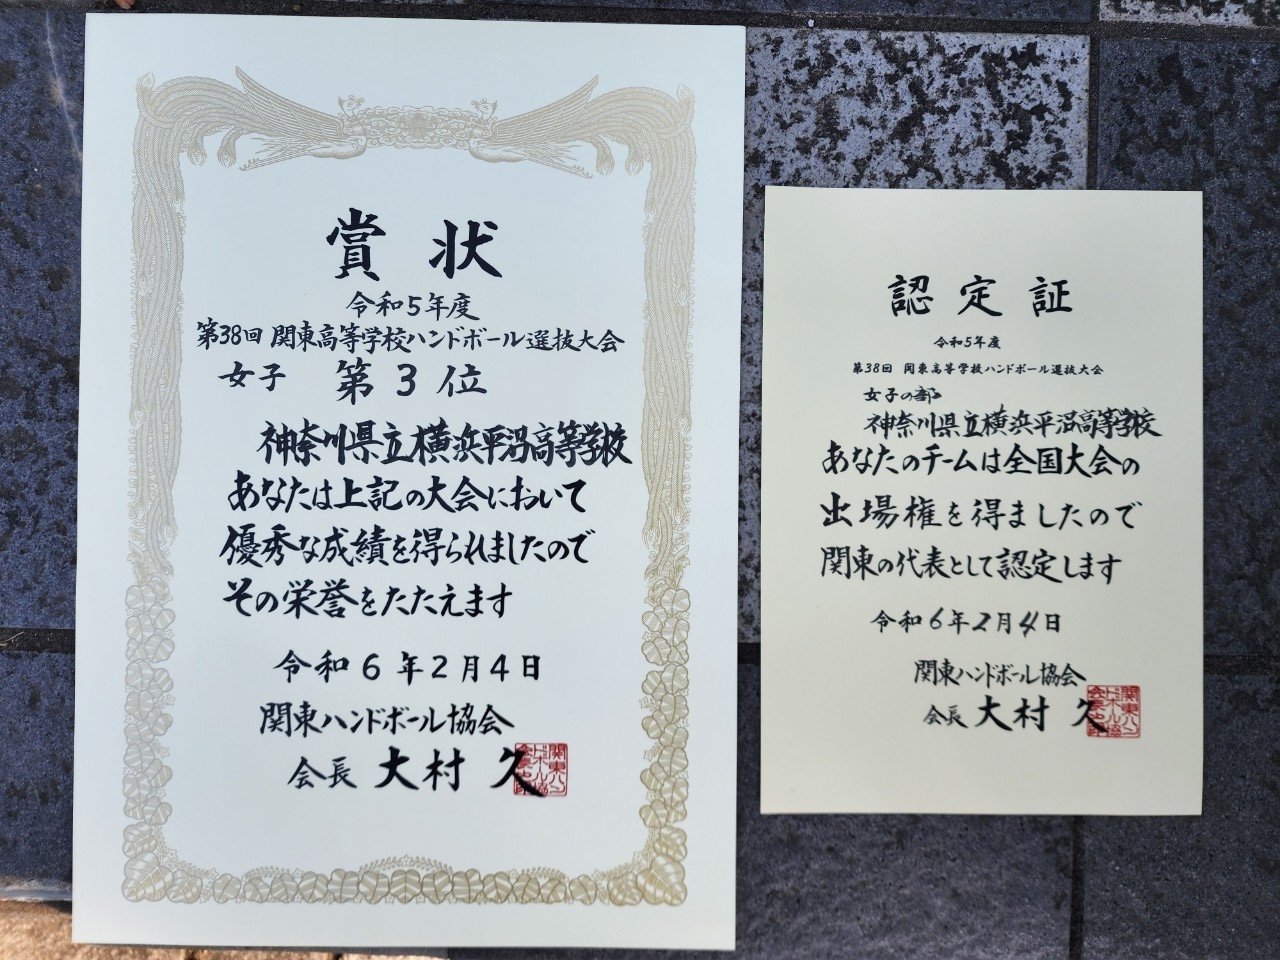 賞状
令和5年度
第38回 関東高等学校ハンドボール選抜大会
女子 第3位
神奈川県立横浜平沼高等学校
あなたは上記の大会において
優秀な成績を得られましたので
その栄誉をたたえます
令和6年2月4日
関東ハンドボール協会
会長 大村 久
認定証
令和5年度
第38回 関東高等学校ハンドボール選抜大会
女子の部
神奈川県立横浜平沼高等学校
あなたのチームは全国大会の
出場権を得ましたので
関東の代表として認定します
令和6年2月4日
関東ハンドボール協会
会長 大村 久